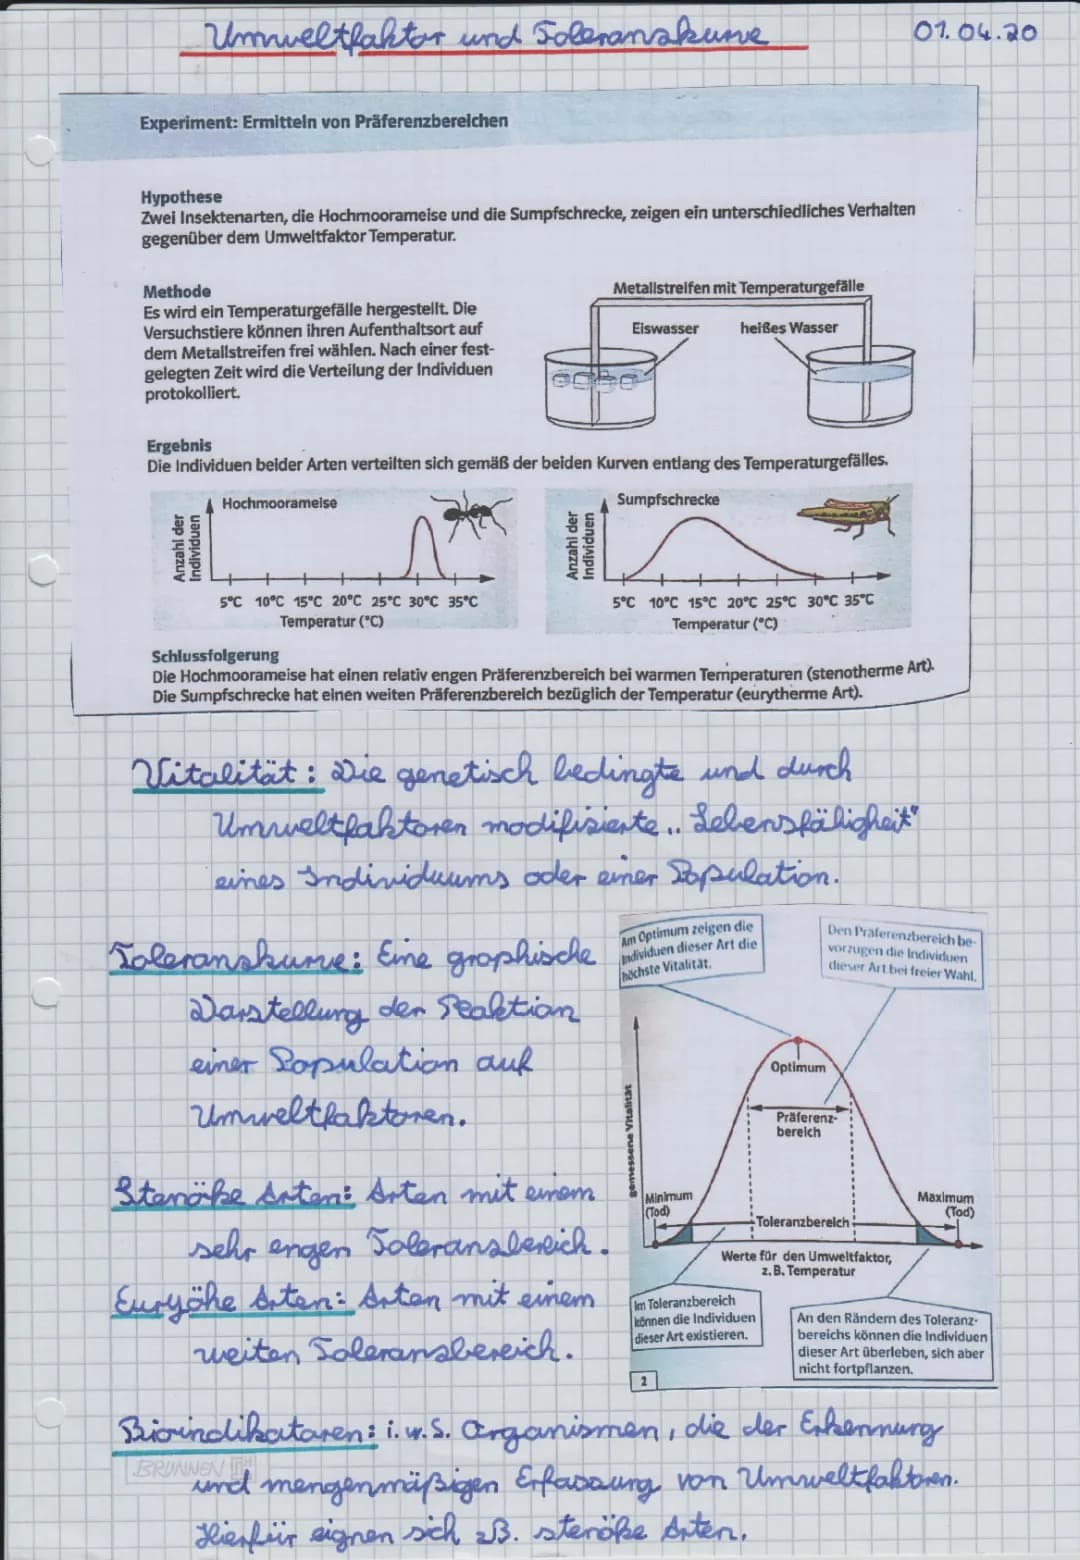 Umweltfaktor und Toleranzkurve
01.04.20
Experiment: Ermitteln von Präferenzbereichen
Hypothese
Zwei Insektenarten, die Hochmoorameise und die Sumpfschrecke, zeigen ein unterschiedliches Verhalten
gegenüber dem Umweltfaktor Temperatur.
Methode
Es wird ein Temperaturgefälle hergestellt. Die
Versuchstiere können ihren Aufenthaltsort auf
dem Metallstreifen frei wählen. Nach einer fest-
gelegten Zeit wird die Verteilung der Individuen
protokolliert.
Metallstreifen mit Temperaturgefälle
Eiswasser heißes Wasser
Ergebnis
Die Individuen beider Arten verteilten sich gemäß der beiden Kurven entlang des Temperaturgefälles.
Anzahl der
Individuen
Hochmoorameise
5°C 10°C 15°C 20°C 25°C 30°C 35°C
Temperatur (°C)
Anzahl der
Individuen
Sumpfschrecke
5°C 10°C 15°C 20°C 25°C 30°C 35°C
Temperatur (°C)
Schlussfolgerung
Die Hochmoorameise hat einen relativ engen Präferenzbereich bei warmen Temperaturen (stenotherme Art).
Die Sumpfschrecke hat einen weiten Präferenzbereich bezüglich der Temperatur (eurytherme Art).
Vitalität: Die genetisch bedingte und durch
Umweltfaktoren modifizierte „Lebensfähigkeit"
eines Individuums oder einer Population.
Toleranzkurve: Eine graphische
Darstellung der Reaktion
einer Population auf
Umweltfaktoren.
Stenöke Arten: Arten mit einem
sehr engen Toleranzbereich.
Euryöke Arten: Arten mit einem
weiten Toleranzbereich.
Am Optimum zeigen die
Individuen dieser Art die
höchste Vitalität.
Den Präferenzbereich be-
vorzugen die Individuen
dieser Art bei freier Wahl.
gemessene Vitalität
Optimum
Präferenz-
bereich
Minimum
(Tod)
Maximum
(Tod)
Toleranzbereich
Werte für den Umweltfaktor,
z. B. Temperatur
Im Toleranzbereich
können die Individuen
dieser Art existieren.
An den Rändern des Toleranz-
bereichs können die Individuen
dieser Art überleben, sich aber
nicht fortpflanzen.
2
Bioindikatoren: i.w.S. Organismen, die der Erkennung
BRUNNEN
und mengenmäßigen Erfassung von Umweltfaktoren.
Hierfür eignen sich z.B. stenöke Arten.